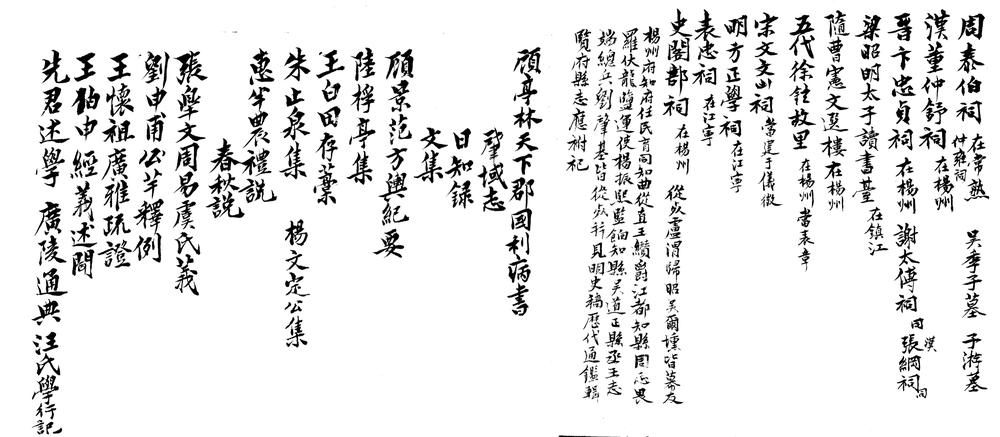 周泰伯祠 在常熟 仲雍祠 吳季子墓 子游墓
漢董仲舒祠 在楊州
晉卞忠貞祠 在楊州 謝太傅祠 同 漢張綱祠 同
梁昭明太子讀書臺 在鎮江
隋曹憲文選樓 在楊州
五代徐鉉故里 在楊州當表章
宋文文山祠 當建于儀徵
明方正學祠 在江寧
表忠祠 在江寧
史閣部祠 在楊州 從死盧渭歸昭吳爾壎皆幕友
楊州府知府任民育同知曲從直王纘爵江都知縣周志畏
羅伏龍鹽運使楊振熙監餉知縣吳道正縣丞王志
端總兵劉肇基皆從死并見明史稿歷代通鑑輯
覽府縣志應祔祀
顧亭林天下郡國利病書
肇域志
日知錄
文集
顧景范方輿紀要
陸桴亭集
王白田存藁
朱止泉集 楊文定公集
惠半農禮說
春秋說
張皋文周易虞氏義
劉申甫公羊釋例
王懷祖廣雅疏證
王伯申經義述聞
先君述學 廣陵通典 汪氏學行記